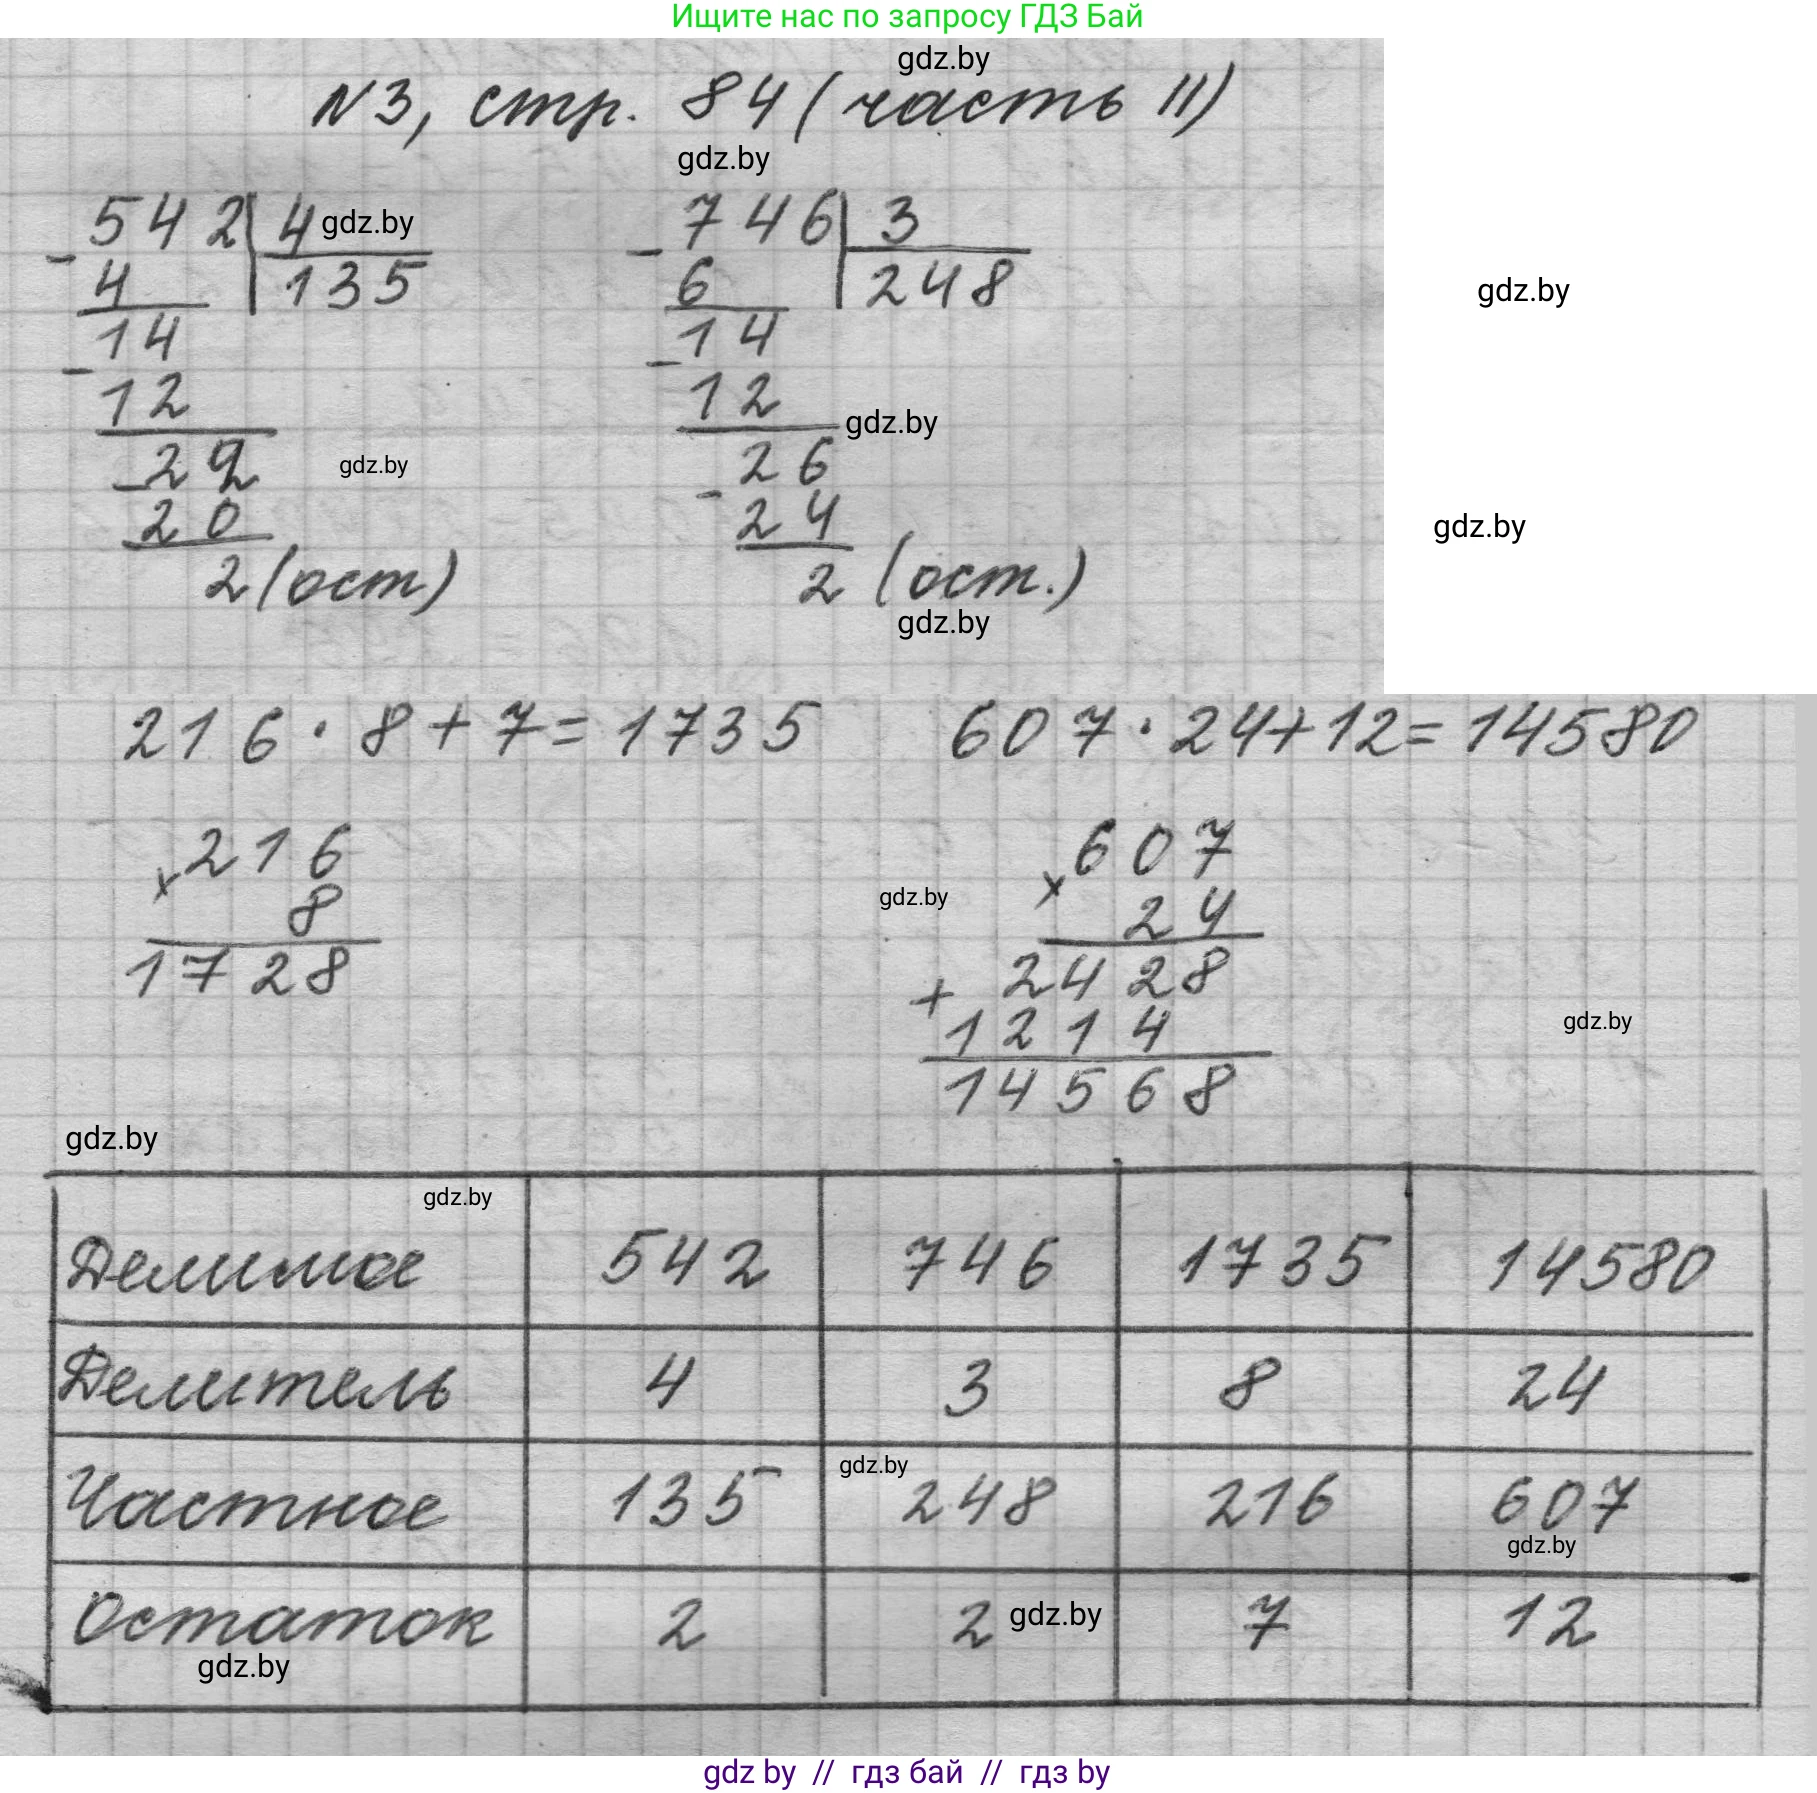 Ищите нас по запросу ГДЗ Бай
gdz.by
N3, стр. 84 (часть II)
gdz.by
542 4 gdz.by
- 4 135
14
- 12
22 gdz.by
- 20
2 (ост)
746 3
- 6 248
14
- 12 gdz.by
26
- 24
2 (ост.)
gdz.by
gdz.by
gdz.by
216 · 8 + 7 = 1735
607 · 24 + 12 = 14580
216
x 8
1728
607
x 24
gdz.by
2428
+ 1214
14568
gdz.by
gdz.by
gdz.by
Делимое 542 746 1735 14580
Делитель 4 3 8 24
gdz.by
Частное 135 248 216 607
gdz.by
Остаток 2 2 gdz.by 7 12
gdz.by
gdz by // гдз бай // гдз by